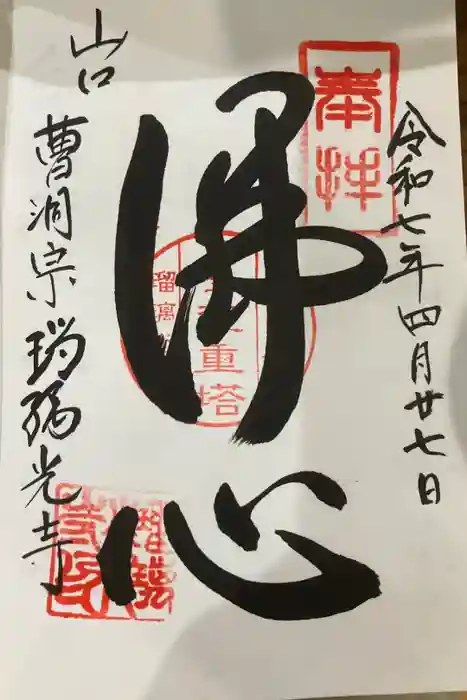 奉拝
令和七年四月廿七日
佛心
瑠璃
五重塔
山口
曹洞宗瑠璃光寺